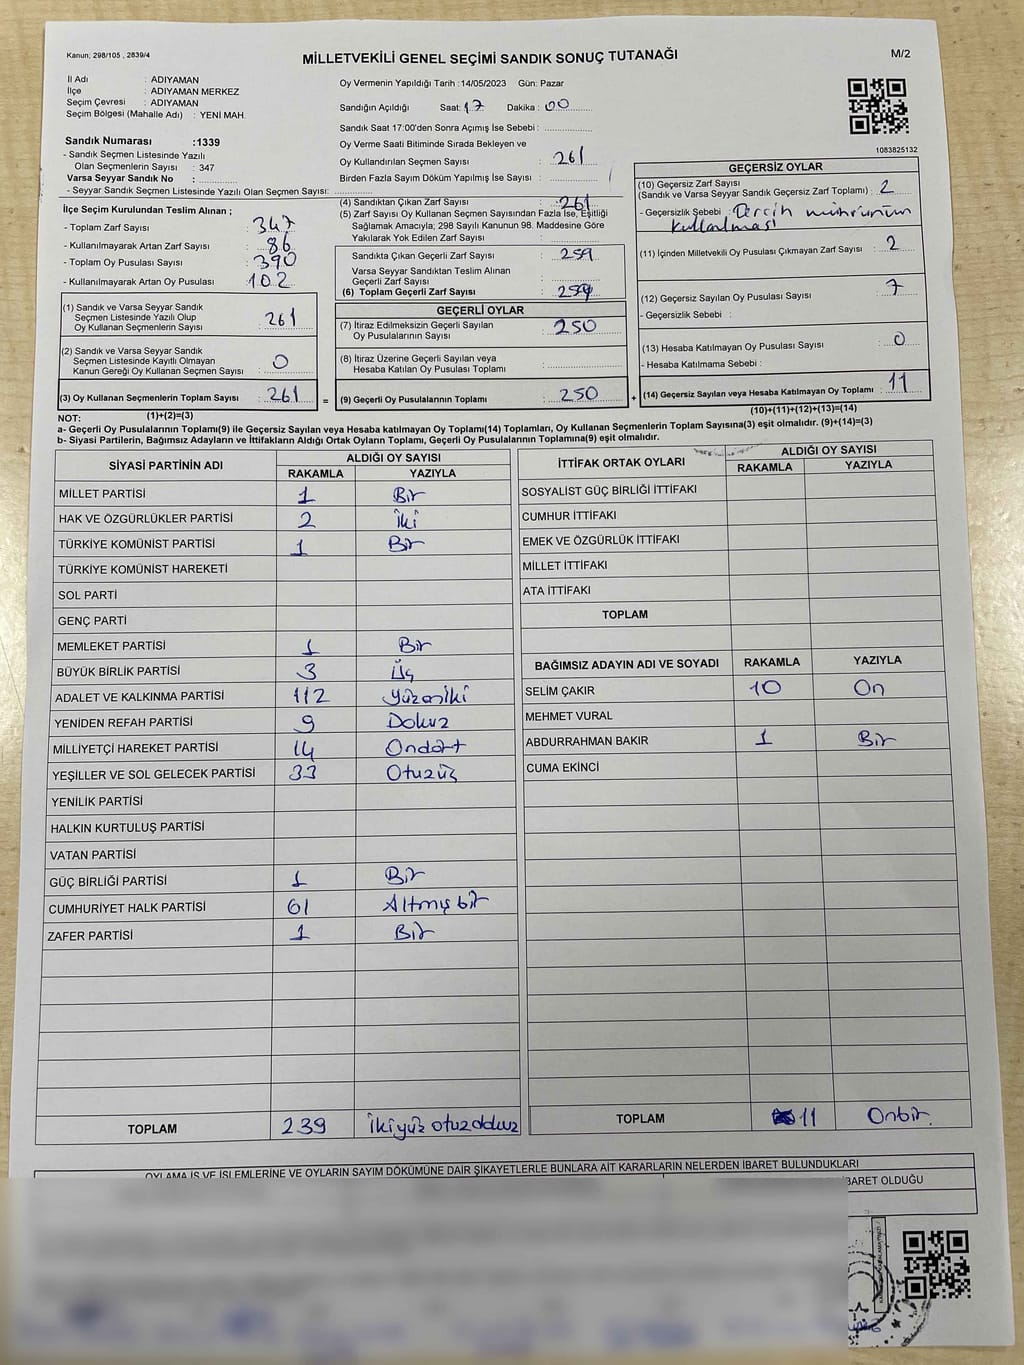 Kanun; 298/105 , 2839/4
MİLLETVEKİLİ GENEL SEÇİMİ SANDIK SONUÇ TUTANAĞI
M/2
İl Adı : ADIYAMAN
İlçe : ADIYAMAN MERKEZ
Seçim Çevresi : ADIYAMAN
Seçim Bölgesi (Mahalle Adı) : YENİ MAH.
Sandık Numarası :1339
- Sandık Seçmen Listesinde Yazılı
Olan Seçmenlerin Sayısı : 347
Varsa Seyyar Sandık No :
- Seyyar Sandık Seçmen Listesinde Yazılı Olan Seçmen Sayısı:
Oy Vermenin Yapıldığı Tarih :14/05/2023 Gün: Pazar
Sandığın Açıldığı Saat: 17 Dakika : 00
Sandık Saat 17:00'den Sonra Açımış İse Sebebi :
Oy Verme Saati Bitiminde Sırada Bekleyen ve
Oy Kullandırılan Seçmen Sayısı : 261
Birden Fazla Sayım Döküm Yapılmış İse Sayısı :
1083825132
İlçe Seçim Kurulundan Teslim Alınan ;
- Toplam Zarf Sayısı : 347
- Kullanılmayarak Artan Zarf Sayısı : 86
- Toplam Oy Pusulası Sayısı : 390
- Kullanılmayarak Artan Oy Pusulası : 102
(1) Sandık ve Varsa Seyyar Sandık
Seçmen Listesinde Yazılı Olup
Oy Kullanan Seçmenlerin Sayısı : 261
(2) Sandık ve Varsa Seyyar Sandık
Seçmen Listesinde Kayıtlı Olmayan
Kanun Gereği Oy Kullanan Seçmen Sayısı : 0
(3) Oy Kullanan Seçmenlerin Toplam Sayısı : 261
(4) Sandıktan Çıkan Zarf Sayısı : 261
(5) Zarf Sayısı Oy Kullanan Seçmen Sayısından Fazla İse, Eşitliği
Sağlamak Amacıyla; 298 Sayılı Kanunun 98. Maddesine Göre
Yakılarak Yok Edilen Zarf Sayısı :
Sandıkta Çıkan Geçerli Zarf Sayısı : 259
Varsa Seyyar Sandıktan Teslim Alınan
Geçerli Zarf Sayısı :
(6) Toplam Geçerli Zarf Sayısı : 259
GEÇERLİ OYLAR
(7) İtiraz Edilmeksizin Geçerli Sayılan
Oy Pusulalarının Sayısı : 250
(8) İtiraz Üzerine Geçerli Sayılan veya
Hesaba Katılan Oy Pusulası Toplamı :
= (9) Geçerli Oy Pusulalarının Toplamı : 250
GEÇERSİZ OYLAR
(10) Geçersiz Zarf Sayısı
(Sandık ve Varsa Seyyar Sandık Geçersiz Zarf Toplamı) : 2
- Geçersizlik Sebebi : Tercih mührünün
kullanılması
(11) İçinden Milletvekili Oy Pusulası Çıkmayan Zarf Sayısı : 2
(12) Geçersiz Sayılan Oy Pusulası Sayısı : 7
- Geçersizlik Sebebi :
(13) Hesaba Katılmayan Oy Pusulası Sayısı : 0
- Hesaba Katılmama Sebebi :
+ (14) Geçersiz Sayılan veya Hesaba Katılmayan Oy Toplamı : 11
NOT: (1)+(2)=(3)
(10)+(11)+(12)+(13)=(14)
a- Geçerli Oy Pusulalarının Toplamı(9) ile Geçersiz Sayılan veya Hesaba katılmayan Oy Toplamı(14) Toplamları, Oy Kullanan Seçmenlerin Toplam Sayısına(3) eşit olmalıdır. (9)+(14)=(3)
b- Siyasi Partilerin, Bağımsız Adayların ve İttifakların Aldığı Ortak Oyların Toplamı, Geçerli Oy Pusulalarının Toplamına(9) eşit olmalıdır.
SİYASİ PARTİNİN ADI ALDIĞI OY SAYISI
RAKAMLA YAZIYLA
MİLLET PARTİSİ 1 Bir
HAK VE ÖZGÜRLÜKLER PARTİSİ 2 İki
TÜRKİYE KOMÜNİST PARTİSİ 1 Bir
TÜRKİYE KOMÜNİST HAREKETİ
SOL PARTİ
GENÇ PARTİ
MEMLEKET PARTİSİ 1 Bir
BÜYÜK BİRLİK PARTİSİ 3 Üç
ADALET VE KALKINMA PARTİSİ 112 Yüzoniki
YENİDEN REFAH PARTİSİ 9 Dokuz
MİLLİYETÇİ HAREKET PARTİSİ 14 Ondört
YEŞİLLER VE SOL GELECEK PARTİSİ 33 Otuzüç
YENİLİK PARTİSİ
HALKIN KURTULUŞ PARTİSİ
VATAN PARTİSİ
GÜÇ BİRLİĞİ PARTİSİ 1 Bir
CUMHURİYET HALK PARTİSİ 61 Altmışbir
ZAFER PARTİSİ 1 Bir
TOPLAM 239 İkiyüz otuzdokuz
İTTİFAK ORTAK OYLARI ALDIĞI OY SAYISI
RAKAMLA YAZIYLA
SOSYALİST GÜÇ BİRLİĞİ İTTİFAKI
CUMHUR İTTİFAKI
EMEK VE ÖZGÜRLÜK İTTİFAKI
MİLLET İTTİFAKI
ATA İTTİFAKI
TOPLAM
BAĞIMSIZ ADAYIN ADI VE SOYADI RAKAMLA YAZIYLA
SELİM ÇAKIR 10 On
MEHMET VURAL
ABDURRAHMAN BAKIR 1 Bir
CUMA EKİNCİ
TOPLAM 11 Onbir
OYLAMA İŞ VE İŞLEMLERİNE VE OYLARIN SAYIM DÖKÜMÜNE DAİR ŞİKAYETLERLE BUNLARA AİT KARARLARIN NELERDEN İBARET BULUNDUKLARI
BARET OLDUĞU